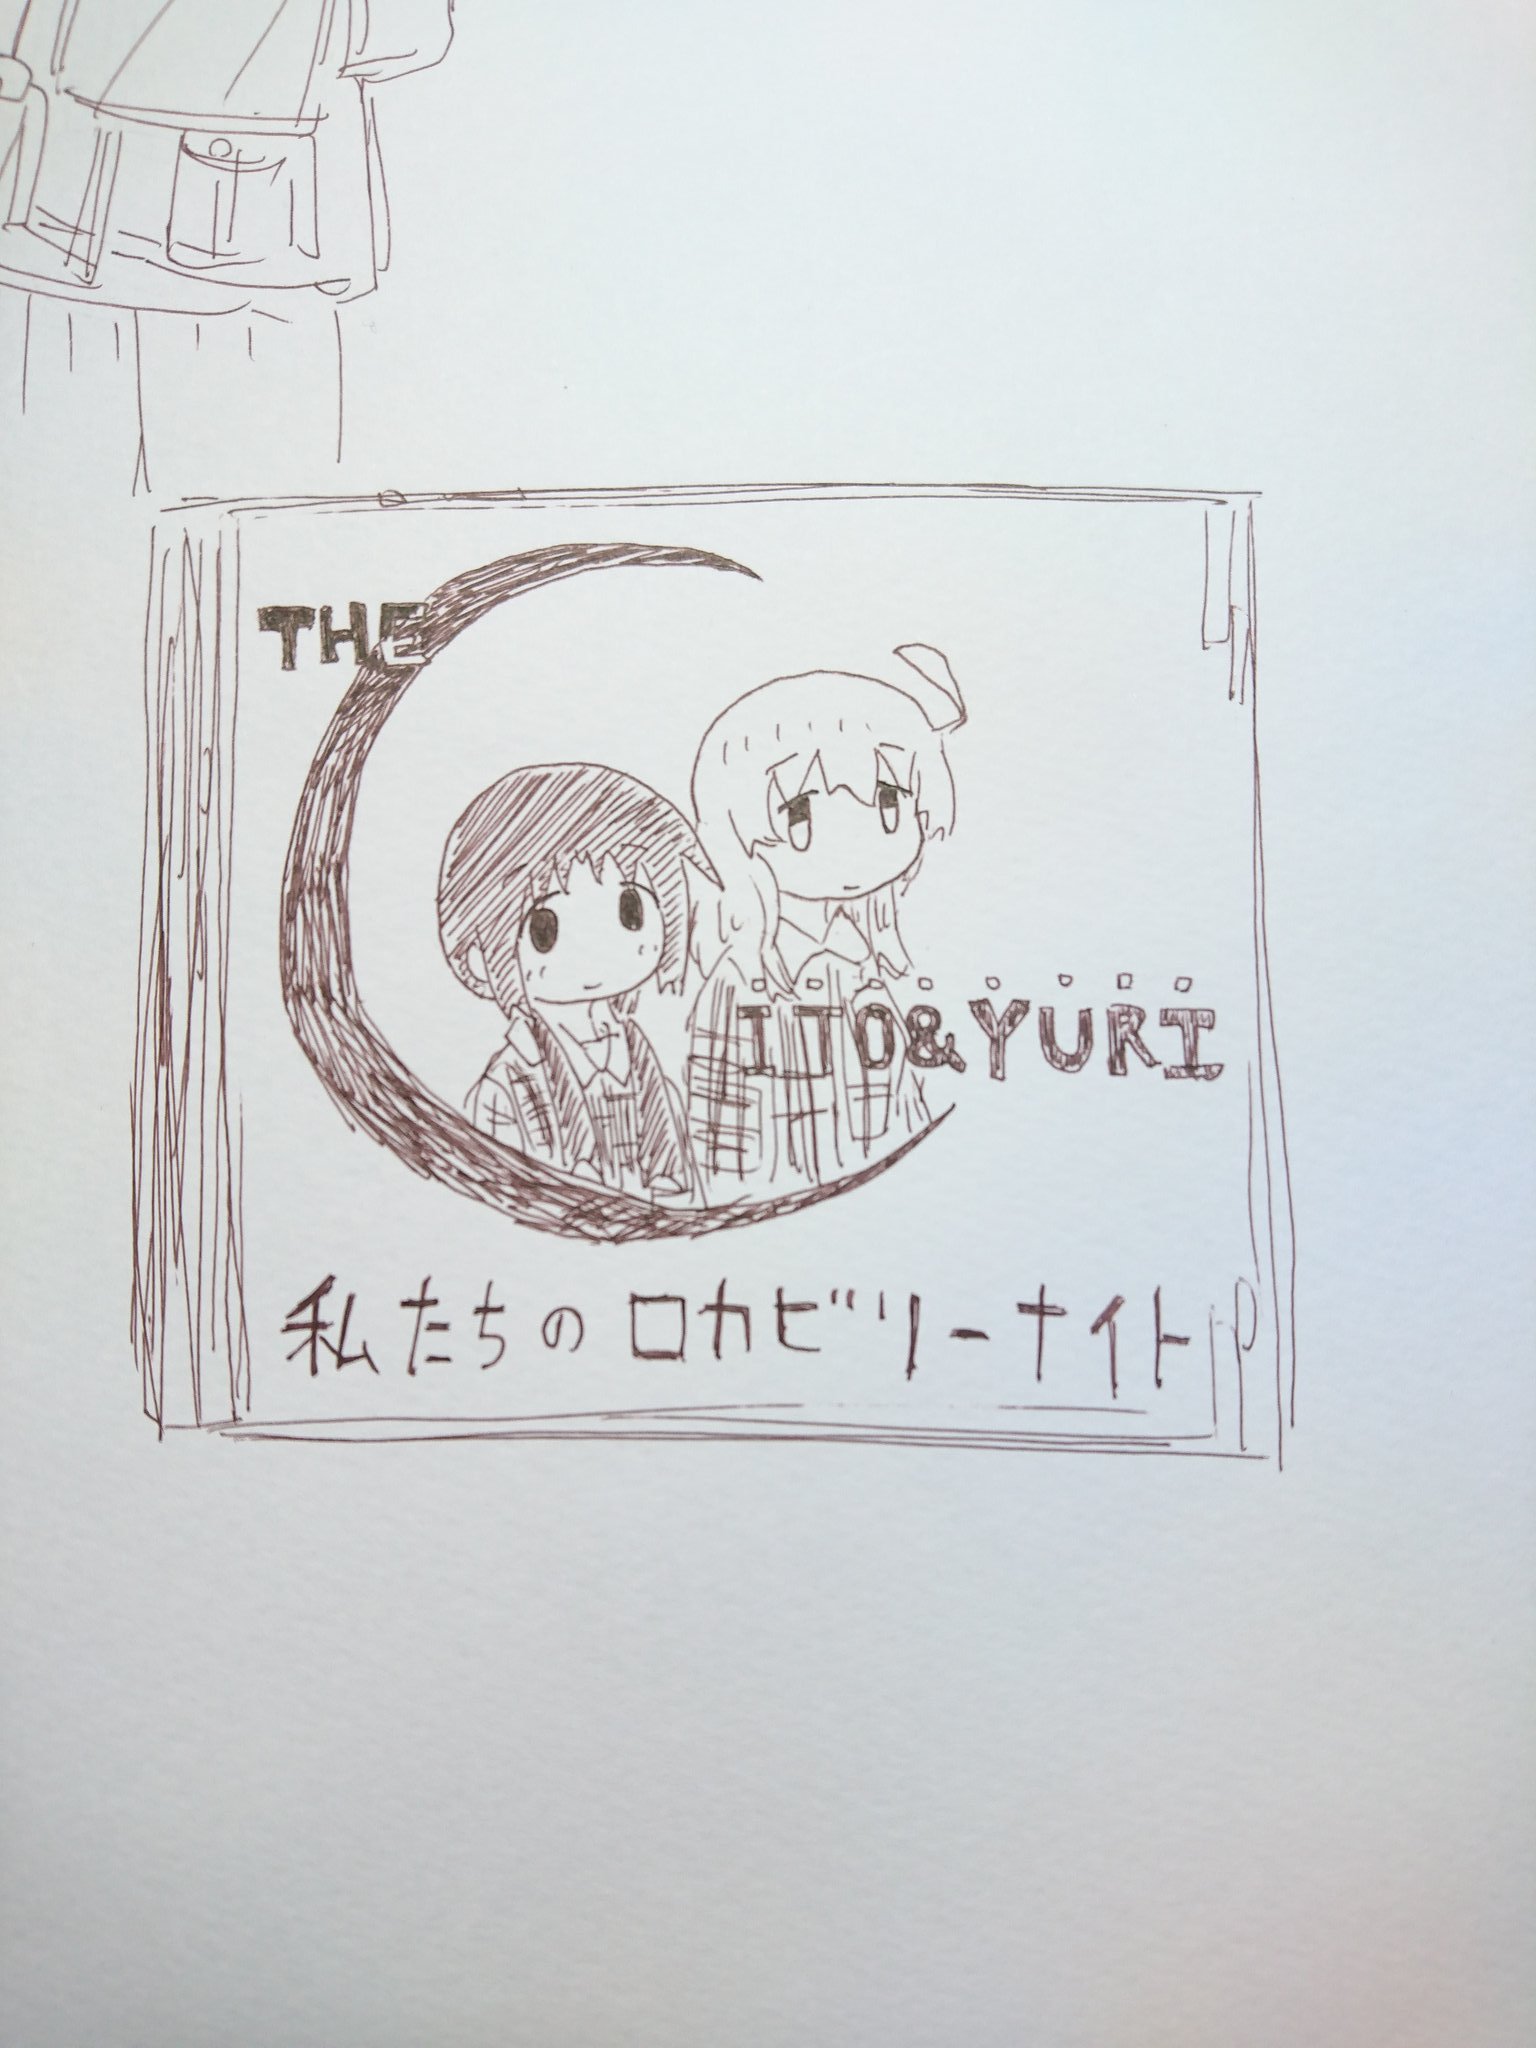 THE
ITO&YURI
私たちのロカビリーナイト